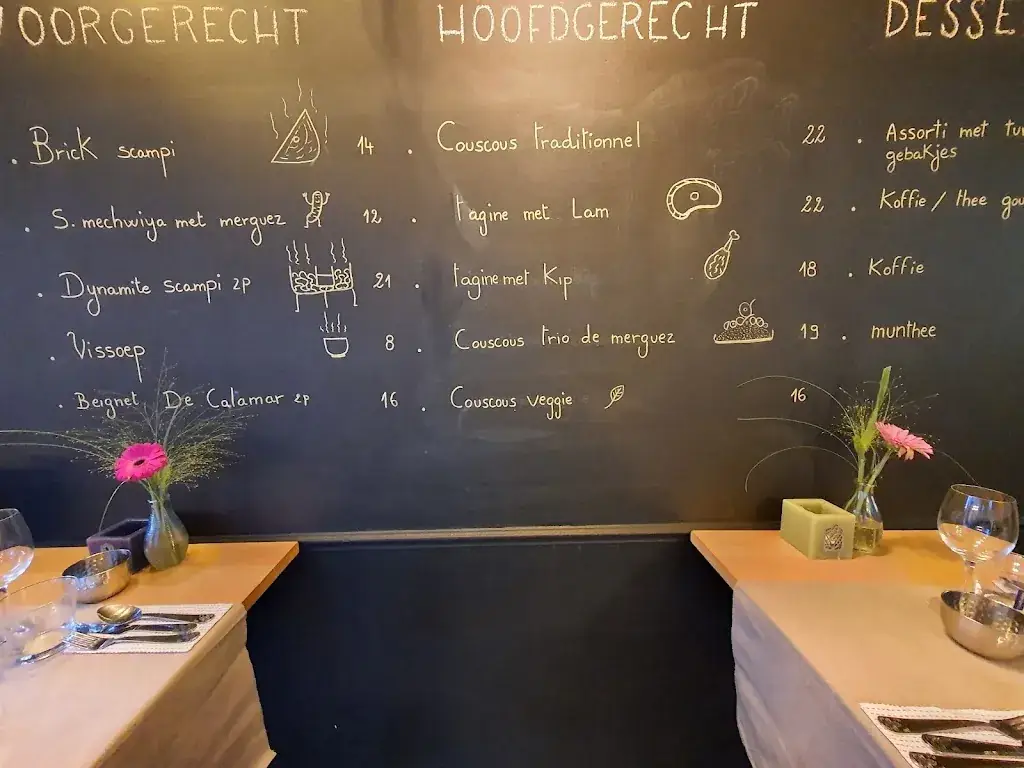 VOORGERECHT
Brick scampi 14
S. mechwiya met merguez 12
Dynamite scampi 2P 21
Vissoep 8
Beignet De Calamar 2P 16
HOOFDGERECHT
Couscous traditionnel 22
tagine met Lam 22
tagine met Kip 18
Couscous trio de merguez 19
Couscous veggie 16
DESSE
Assorti met
gebakjes
Koffie / thee
Koffie
munthee